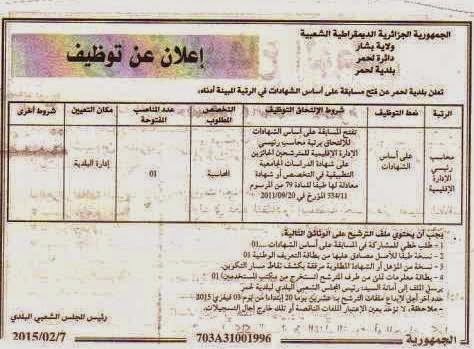 الجمهورية الجزائرية الديمقراطية الشعبية
ولاية بشار
دائرة لحمر
بلدية لحمر
إعلان عن توظيف
تعلن بلدية لحمر عن فتح مسابقة على أساس الشهادات في الرتبة المبينة أدناه.
الرتبة
نمط التوظيف
شروط الإلتحاق التوظيف
التخصص المطلوب
عدد المناصب المفتوحة
مكان التعيين
شروط أخرى
محاسب رئيسي الإدارة الإقليمية
على أساس الشهادات
تفتح المسابقة على أساس الشهادات
للإلتحاق برتبة محاسب رئيسي
الإدارة الإقليمية للمترشحين الحائزين
على شهادة الدراسات الجامعية
التطبيقية في التخصص أو شهادة
معادلة لها طبقا للمادة 79 من المرسوم
334/11 المؤرخ في 2011/09/20
المحاسبة
01
إدارة البلدية
يجب أن يحتوي ملف الترشيح على الوثائق التالية:
1 - طلب خطي للمشاركة في المسابقة على أساس الشهادات....01
2 - نسخة طبقا للأصل مصادق عليها من بطاقة التعريف الوطنية 01
3 - نسخة من المؤهل أو الشهادة المطلوبة مرفقة بكشف نقاط مسار التكوين.
4 - بطاقة معلومات تملئ من طرف المترشح تستخرج من مكتب المستخدمين 01
يرسل الملف إلى أمانة السيد: رئيس المجلس الشعبي البلدي لبلدية لحمر
حدد آخر أجل لإيداع ملفات الترشح بـ: عشرين يوما 20 إبتداءا من يوم 03 فيفري 2015
- ملاحظة: لا تؤخذ بعين الإعتبار الملفات الناقصة أو تلك خارج آجال التسجيلات.
رئيس المجلس الشعبي البلدي
الجمهورية
703A31001996
2015/02/7